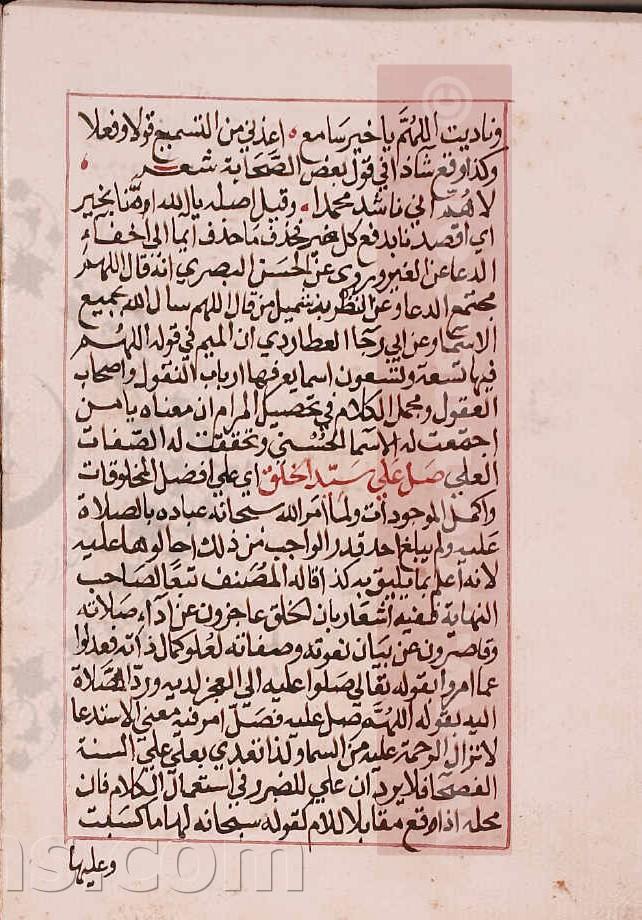 وناديت اللهم يا خير سامع ۰ اعذني من التسميع قولا وفعلا
وكذا وقع شاذا في قول بعض الصحابة شعر ۰
لاهم اني ناشد محمدا ۰ وقيل اصله يا الله امنا بخير
اي اقصدنا بدفع كل ضير فحذف ما حذف ايما الى اخفاء
الدعا عن الغير وروي عن الحسن البصري انه قال اللهم
مجتمع الدعا وعن النضر بن شميل من قال اللهم سال الله بجميع
الاسما وعن ابي رجا العطاردي ان الميم في قوله اللهم
فيها تسعة وتسعون اسما يعرفها ارباب النقول واصحاب
العقول ومجمل الكلام في تحصيل المرام ان معناه يا من
اجتمعت له الاسما الحسنى وتحققت له الصفات
العلى صل على سيد الخلق اي على افضل المخلوقات
واكمل الموجودات ولما امر الله سبحانه عباده بالصلاة
عليه ولم يبلغ احد قدر الواجب من ذلك احالوها عليه
لانه اعلم بما يليق به كذا قاله المصنف تبعا لصاحب
النهاية ففيه اشعار بان الخلق عاجزون عن اداء صلاته
وقاصرون عن بيان نعوته وصفاته لعلو كمال ذاته فعدلوا
عما امروا بقوله تعالى صلوا عليه الى العجز لديه ورد الصلاة
اليه بقوله اللهم صل عليه فصل امر فيه معنى الاستدعا
لانزال الرحمة عليه من السما ولذا تعدي بعلى على السنة
الفصحا فلا يرد ان على للضرر في استعمال الكلام فان
محله اذا وقع مقابلا للام كقوله سبحانه لها ما كسبت
وعليها
ns.com